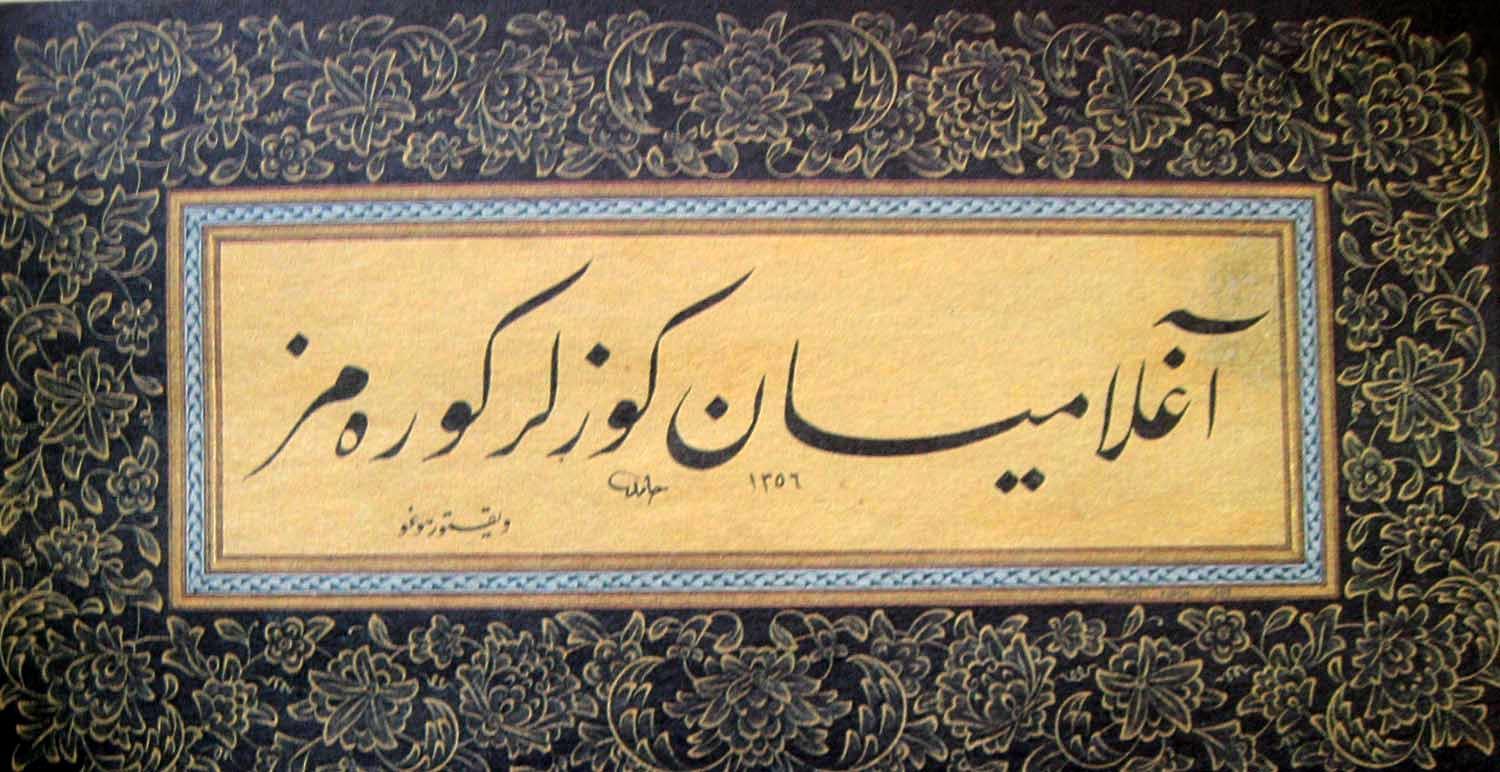 آغلامیان کوزلر کوره مز
حامد ١٣٥٦
ویقتور هوغو